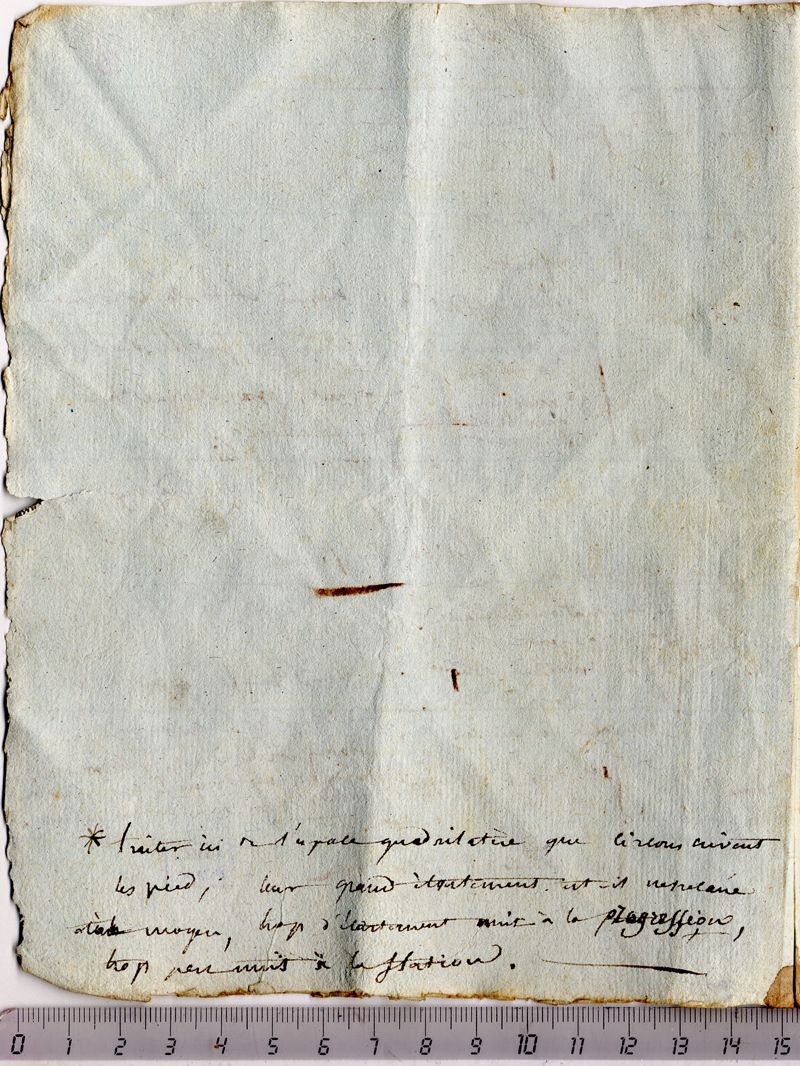 * traiter ici de l'espace quadrilatère que circonscrivent
les pied; leur grand écartement est-il nécessaire
moyen, trop d'écartement nuit à la progression,
trop peu nuit à la station.
0 1 2 3 4 5 6 7 8 9 10 11 12 13 14 15